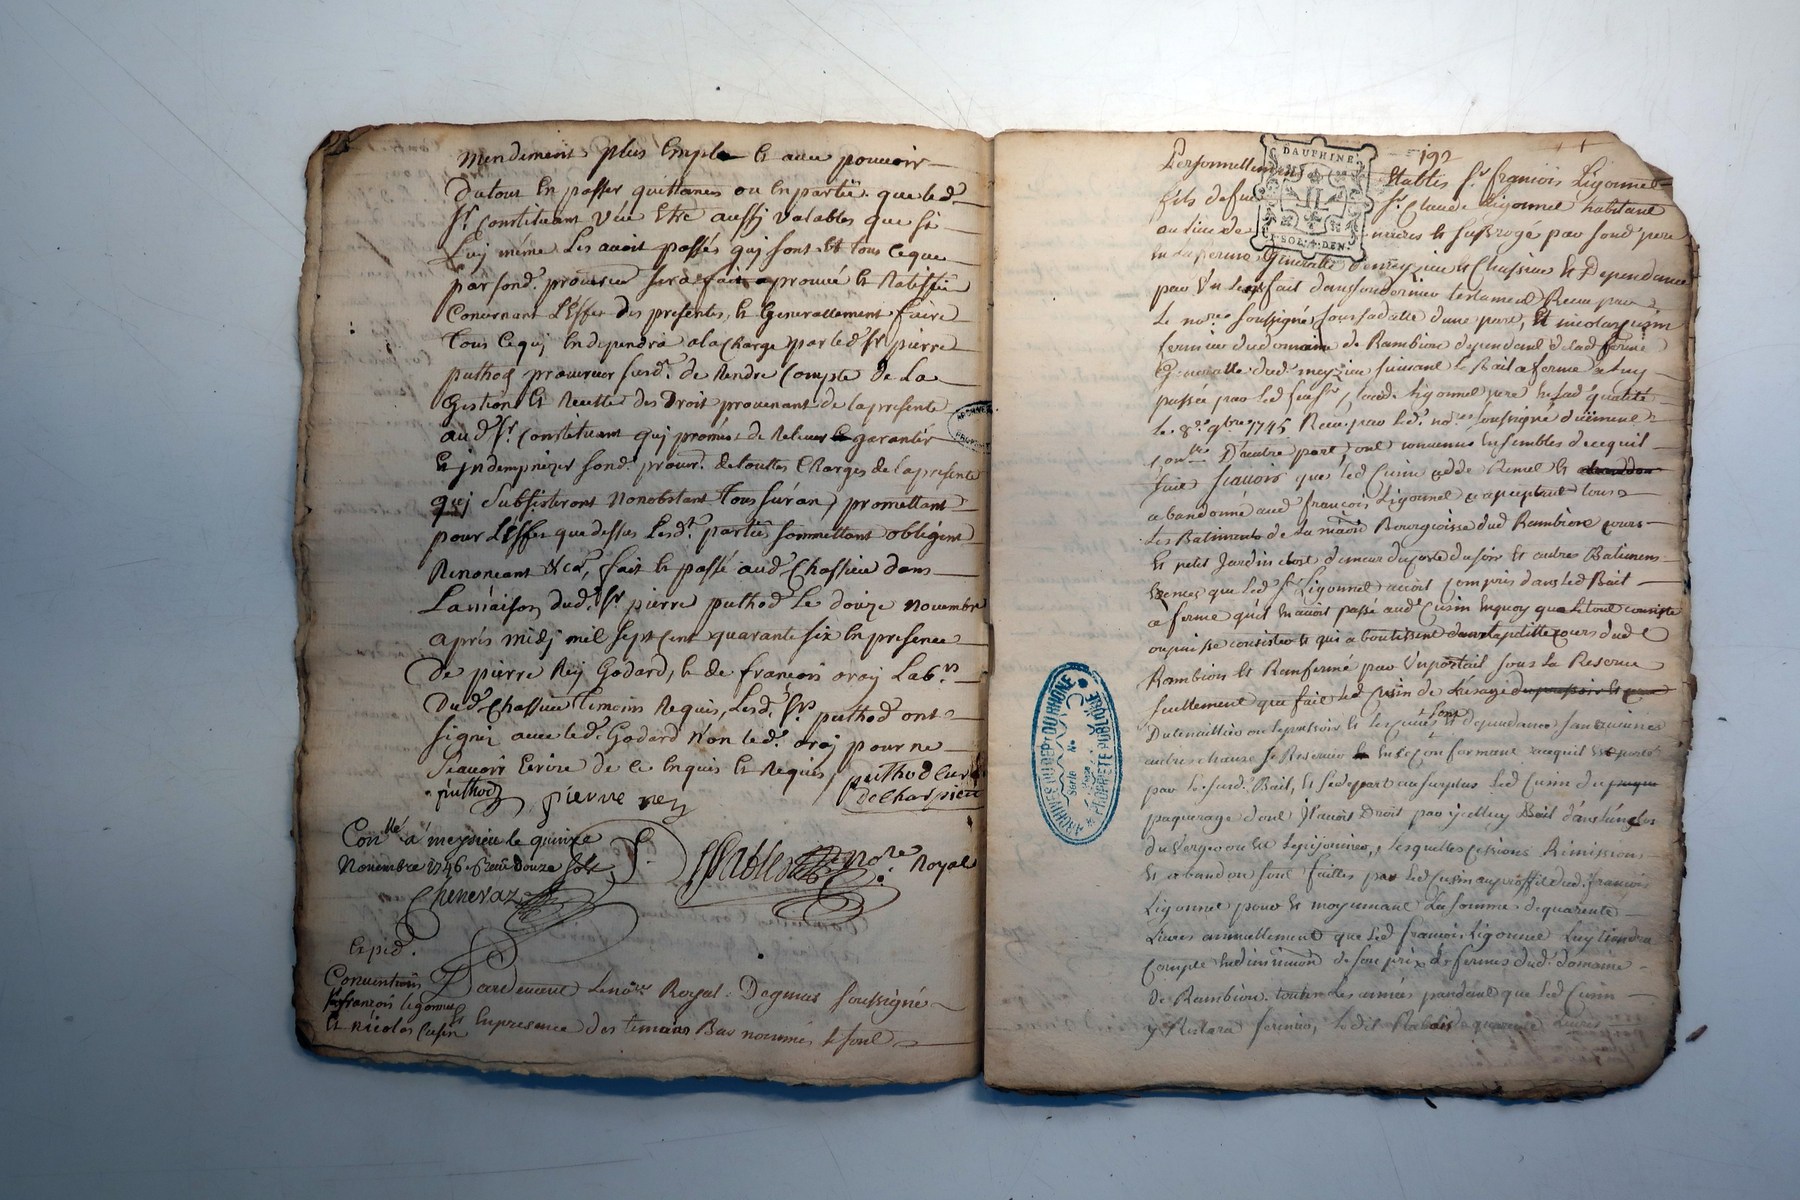 mendement plus emple & avec pouvoir
dutout en passer quittances ou en partië que led.
Sr. constituant veu Etre aussy valables que si
Luy méme Les avoit passés quj sont et tous ceque
par sond. procureur sera fait aprouvé & Ratiffié
Concernant L'Effet des presentes, & Generallement faire
Tous Cequj En dependra ala charge par led. Sr. pierre
puthod procureur susd. de Rendre Compte de La
Gestion & Recette des Droit provenant de lapresente
aud. Sr. Constituant quj promet de Relever & garantir
& jndempnizer sond. procur. detouttes Charges de lapresente
quj Subsisteront Nonobstant Tous suran, promettant
pour L'Effet que dessus Lesd. partiës sommettant obligent
Renonceant &ca, fait & passé aud. Chassieu dans
Lamaison dud. Sr. pierre puthod Le douze novembre
aprés midj mil sept Cent quarante six En presence
De pierre Rey Godard, & de françois oraj Labrs.
Dud. Chassieu Temoins Requis, Lesd. Srs. puthod ont
signez avec led. Godard N'on led. oraj pour ne
Scavoir Ecrire de Ce Enquis & Requis,
puthod Curé
de Charpieu
puthod pierre rey
Conllé à meyzieu le quinze
Novembre 1746 Receu Douze Sols
Chenevaz
nore. Royal
Expid.
Conventions
Sr françois Ligonnel
Et nicolas Cusin
Pardevant Lenore. Royal Soussigné
& Enpresence des temoins Bas nommés, se sont
192
DAUPHINE
SOL. DEN.
Personnellement Etablis Sr. françois Ligonnel
fils de feu Sr. Claude Ligonnel habitant
au lieu de & Subroge par sond. pere
en laferme Generalle demeyzieu & Chassieu & Dependance
par Un Legs fait dans sondernier testament Receu par
Le nore. Soussigné, sous sa datte d'une part, Et nicolas Cusin
fermier dudomaine de Rambion dependant delad. ferme
Generalle dud. meyzieu suivant le Bail aferme a Luy
passée par led. feu Sr. Claude Ligonnel pere en lad. qualité
Le 8e. 9bre 1745 Receu par led. nore. soussigné duëment
D'autre part, ont convenus Ensembles decequil
suit scavoir que led. Cusin a cedé Remet &
abandonné aud. françois Ligonnel acceptant tous
Les Batiments de La maison Bourgeoisse dud. Rambion cours
& petit Jardin clost & autres Batimens
que led. Sr. Ligonnel avoit compris dans led. Bail
a ferme quil En avoit passé aud. Cusin Enquoy que le tout consiste
ou puisse consister & qui aboutissent dans la petitte cours dud.
Rambion & Ranfermé par Un portail sous La Reserve
seullement que fait led. Cusin de L'usage
par le susd. Bail, & se depart au surplus led. Cusin du
paquerage dont Il avoit Droit par jcelluy Bail
lesquelles cessions Rémission
& abandon sont faittes par led. Cusin au proffit dud. françois
Ligonnel pour & moyenant La somme dequarente
Livres annuellement que led. françois Ligonnel Luy tiendra
Compte Endiminution de son prix de fermes dud. domaine
de Rambion toutes Les années pandant que led. Cusin
y Restera fermier, quarente Livres
ARCHIVES DU DEPt DU RHONE
Série
No
PROPRIETE PUBLIQUE